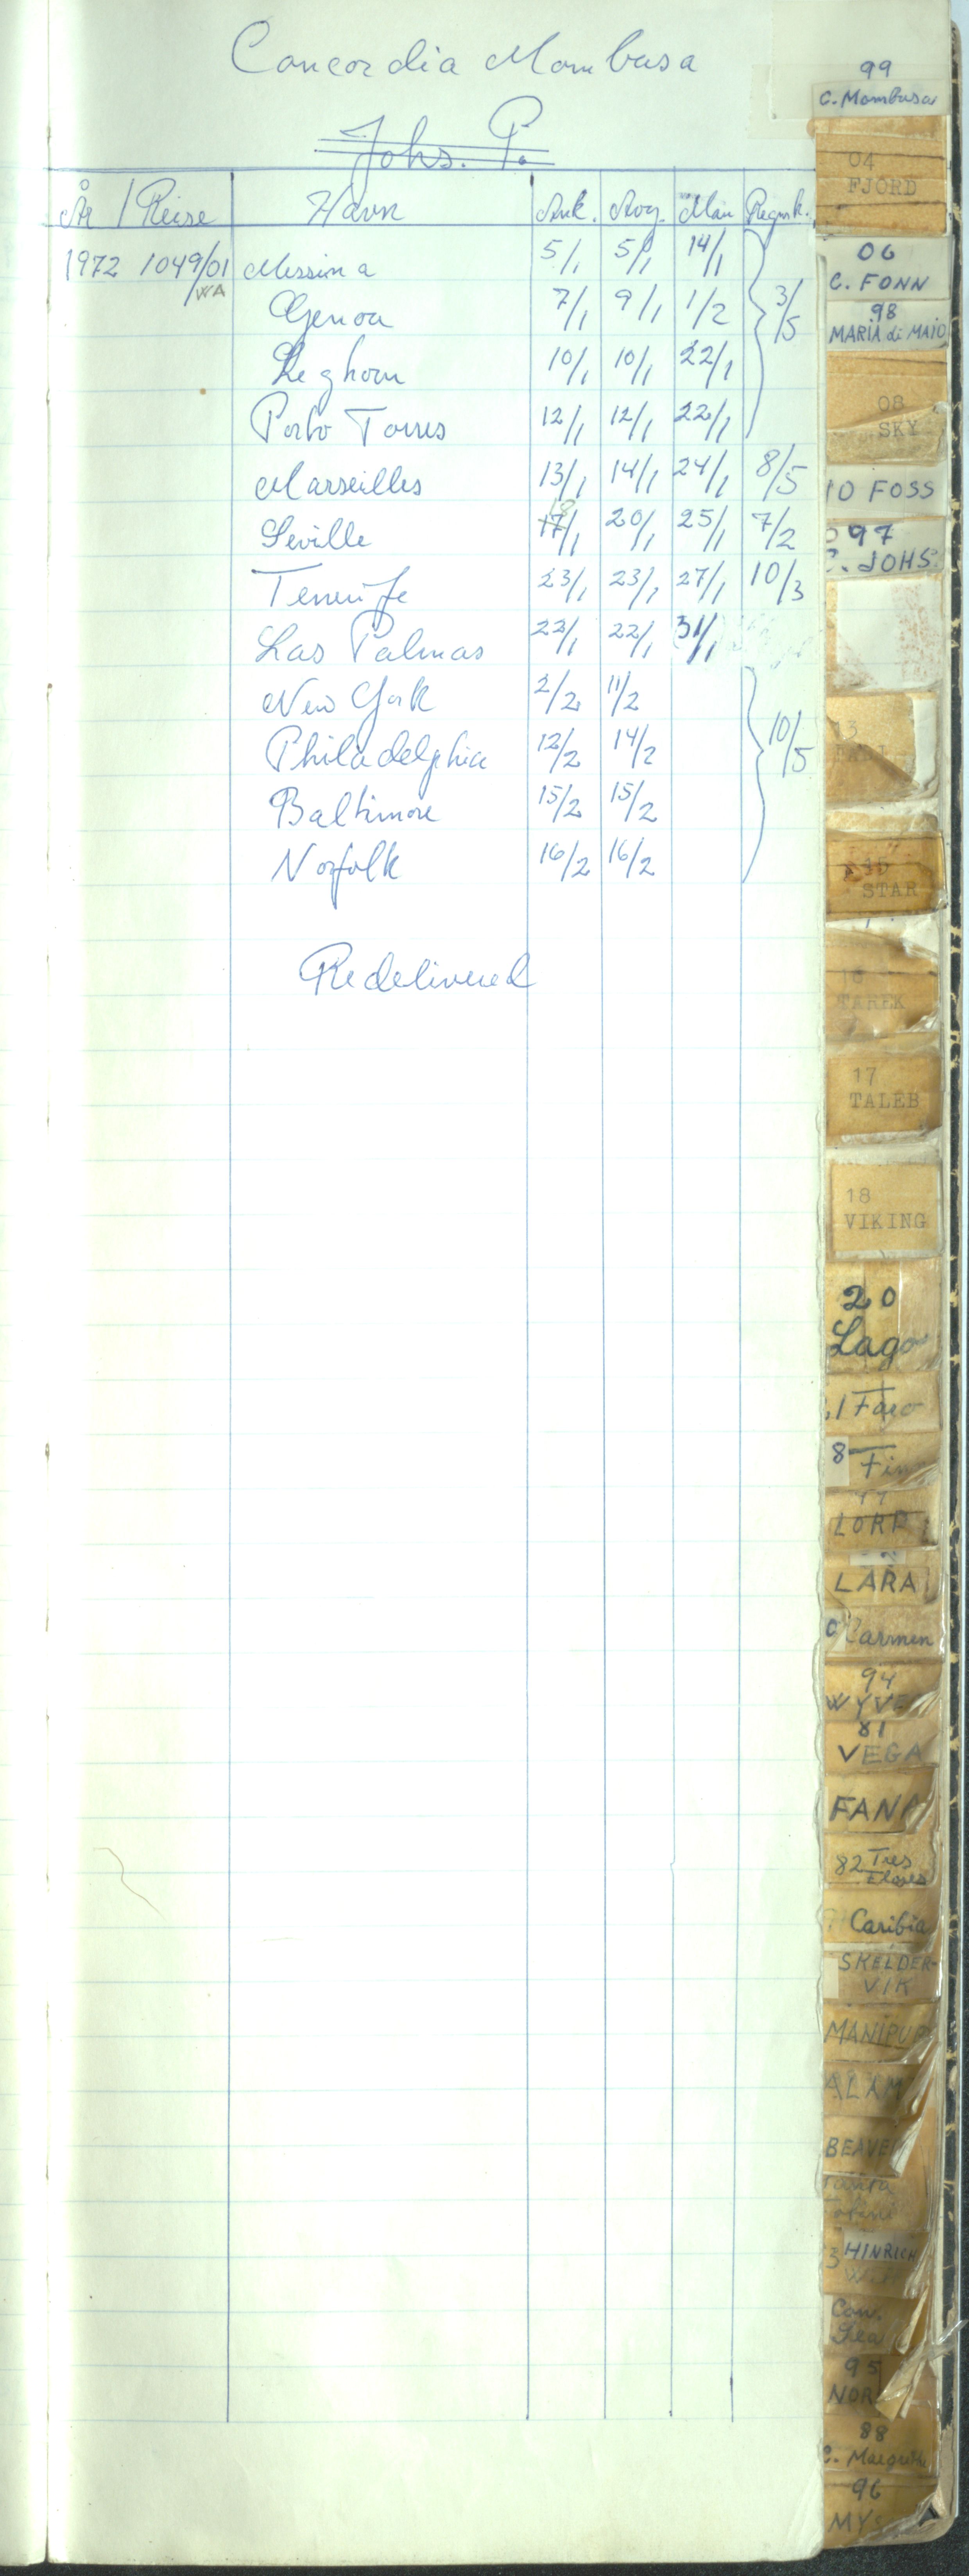 Concordia Mombasa
Johs. P.
År / Reise Havn Ank. Avg. Man Regnsk.
1972 1049/01 Messina 5/1 5/1 14/1
WA
Genoa 7/1 9/1 1/2 3/5
Leghorn 10/1 10/1 22/1
Porto Torres 12/1 12/1 22/1
Marseilles 13/1 14/1 24/1 8/5
Seville 17/1 18 20/1 25/1 7/2
Tenerife 23/1 23/1 27/1 10/3
Las Palmas 22/1 22/1 31/1
New York 2/2 11/2
Philadelphia 12/2 14/2 10/5
Baltimore 15/2 15/2
Norfolk 16/2 16/2
Redelivered
99
C. Mombasa
04
FJORD
06
C. FONN
98
MARIA di MAIO
08
SKY
10 FOSS
97
C. JOHS.
STAR
16
TAREK
17
TALEB
18
VIKING
20
Lago
Faro
8
LORD
LARA
Carmen
94
WYVE
81
VEGA
FANA
82 Tres
Caribia
SKELDER-
VIK
MANIPUR
BEAVER
HINRICH
95
NOR
88
C. Margrethe
96
MYS